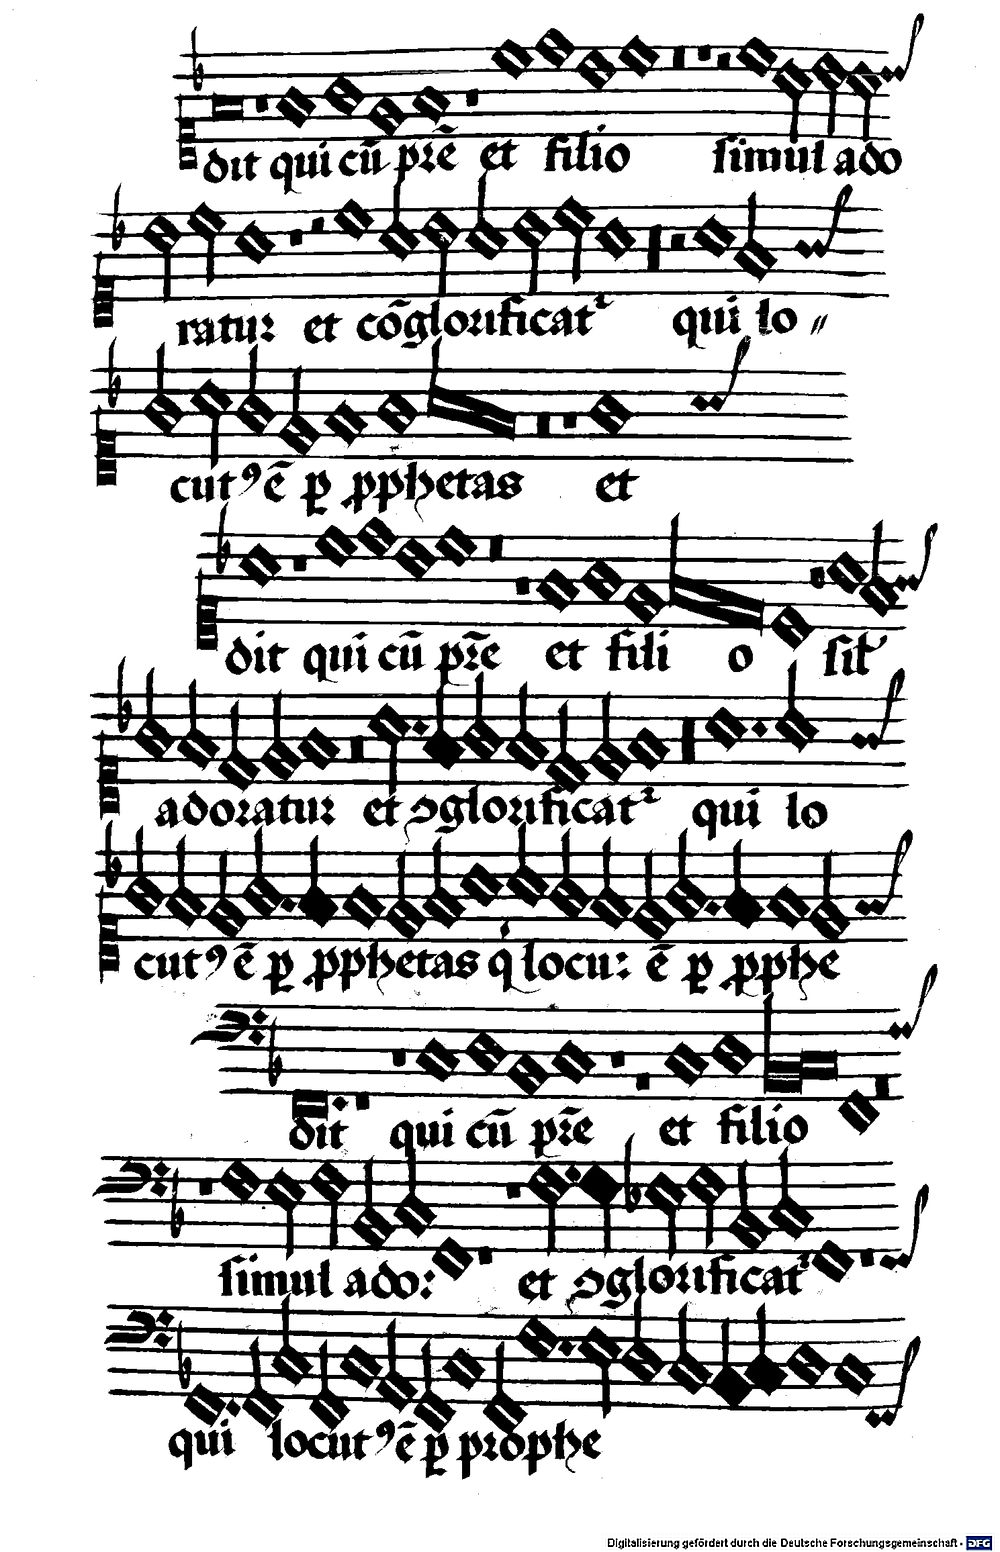 dit qui cū pr̄e et filio simul ado
ratur et cōglorificatᷣ qui lo〃
cutꝰ ē ꝑ ꝓphetas et
dit qui cū pr̄e et fili o sil̛
adoratur et ꝯglorificatᷣ qui lo
cutꝰ ē ꝑ ꝓphetas locu: ē ꝑ ꝓphe
dit qui cū pr̄e et filio
simul ado: et ꝯglorificatᷣ
qui locutꝰ ē ꝑ prophe
Digitalisierung gefördert durch die Deutsche Forschungsgemeinschaft - DFG